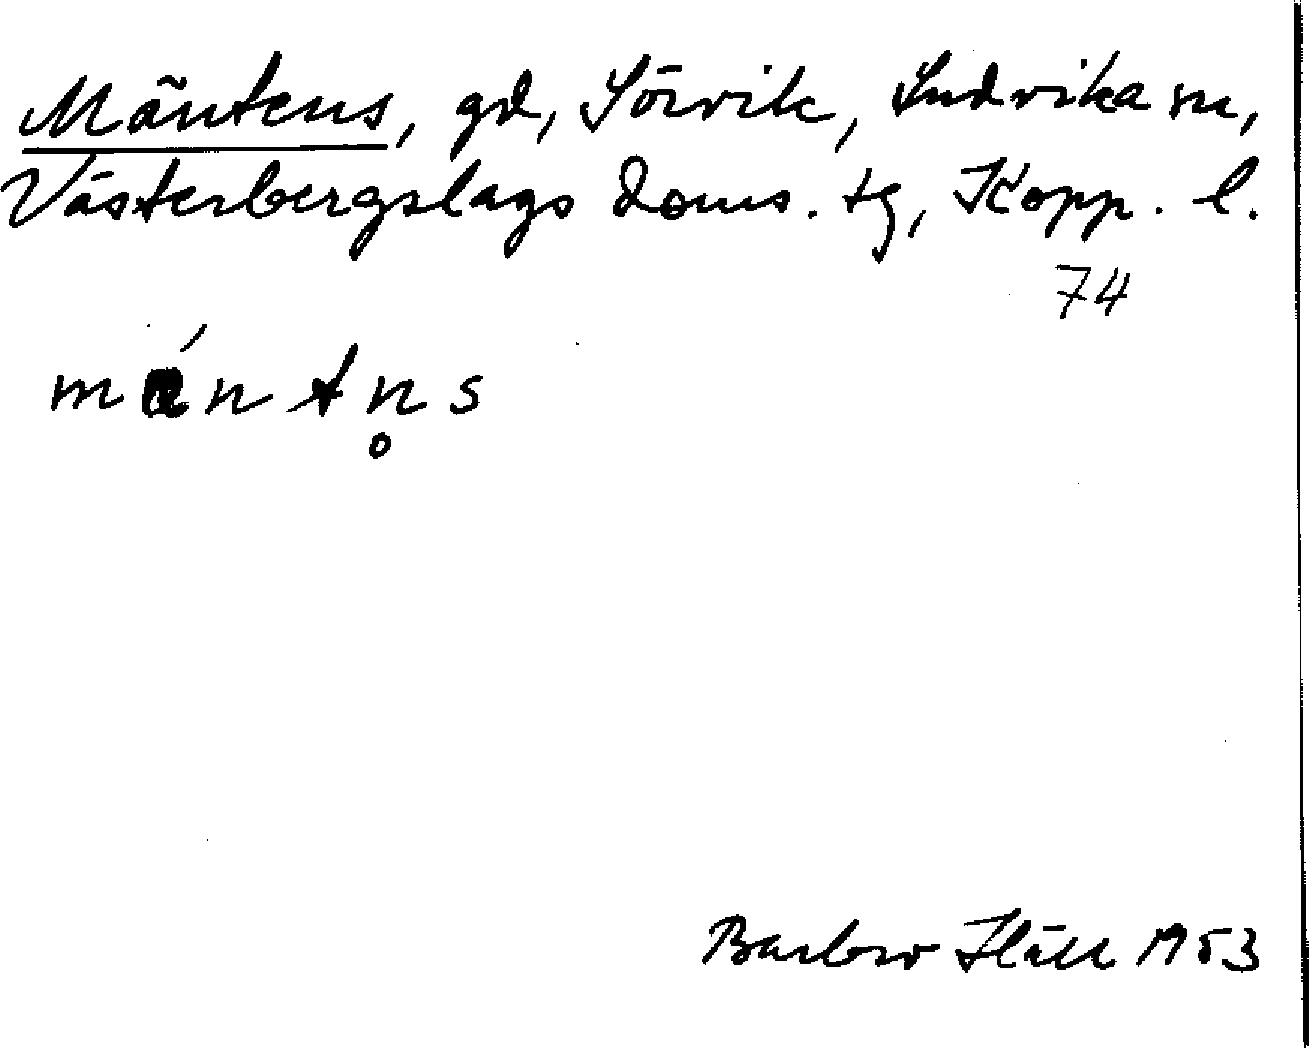 Mäntens, gd, Sörvik, Ludvika sn,
Västerbergslags doms. tg, Kopp. l.
74
m n t n̥ s
Barbro 1953